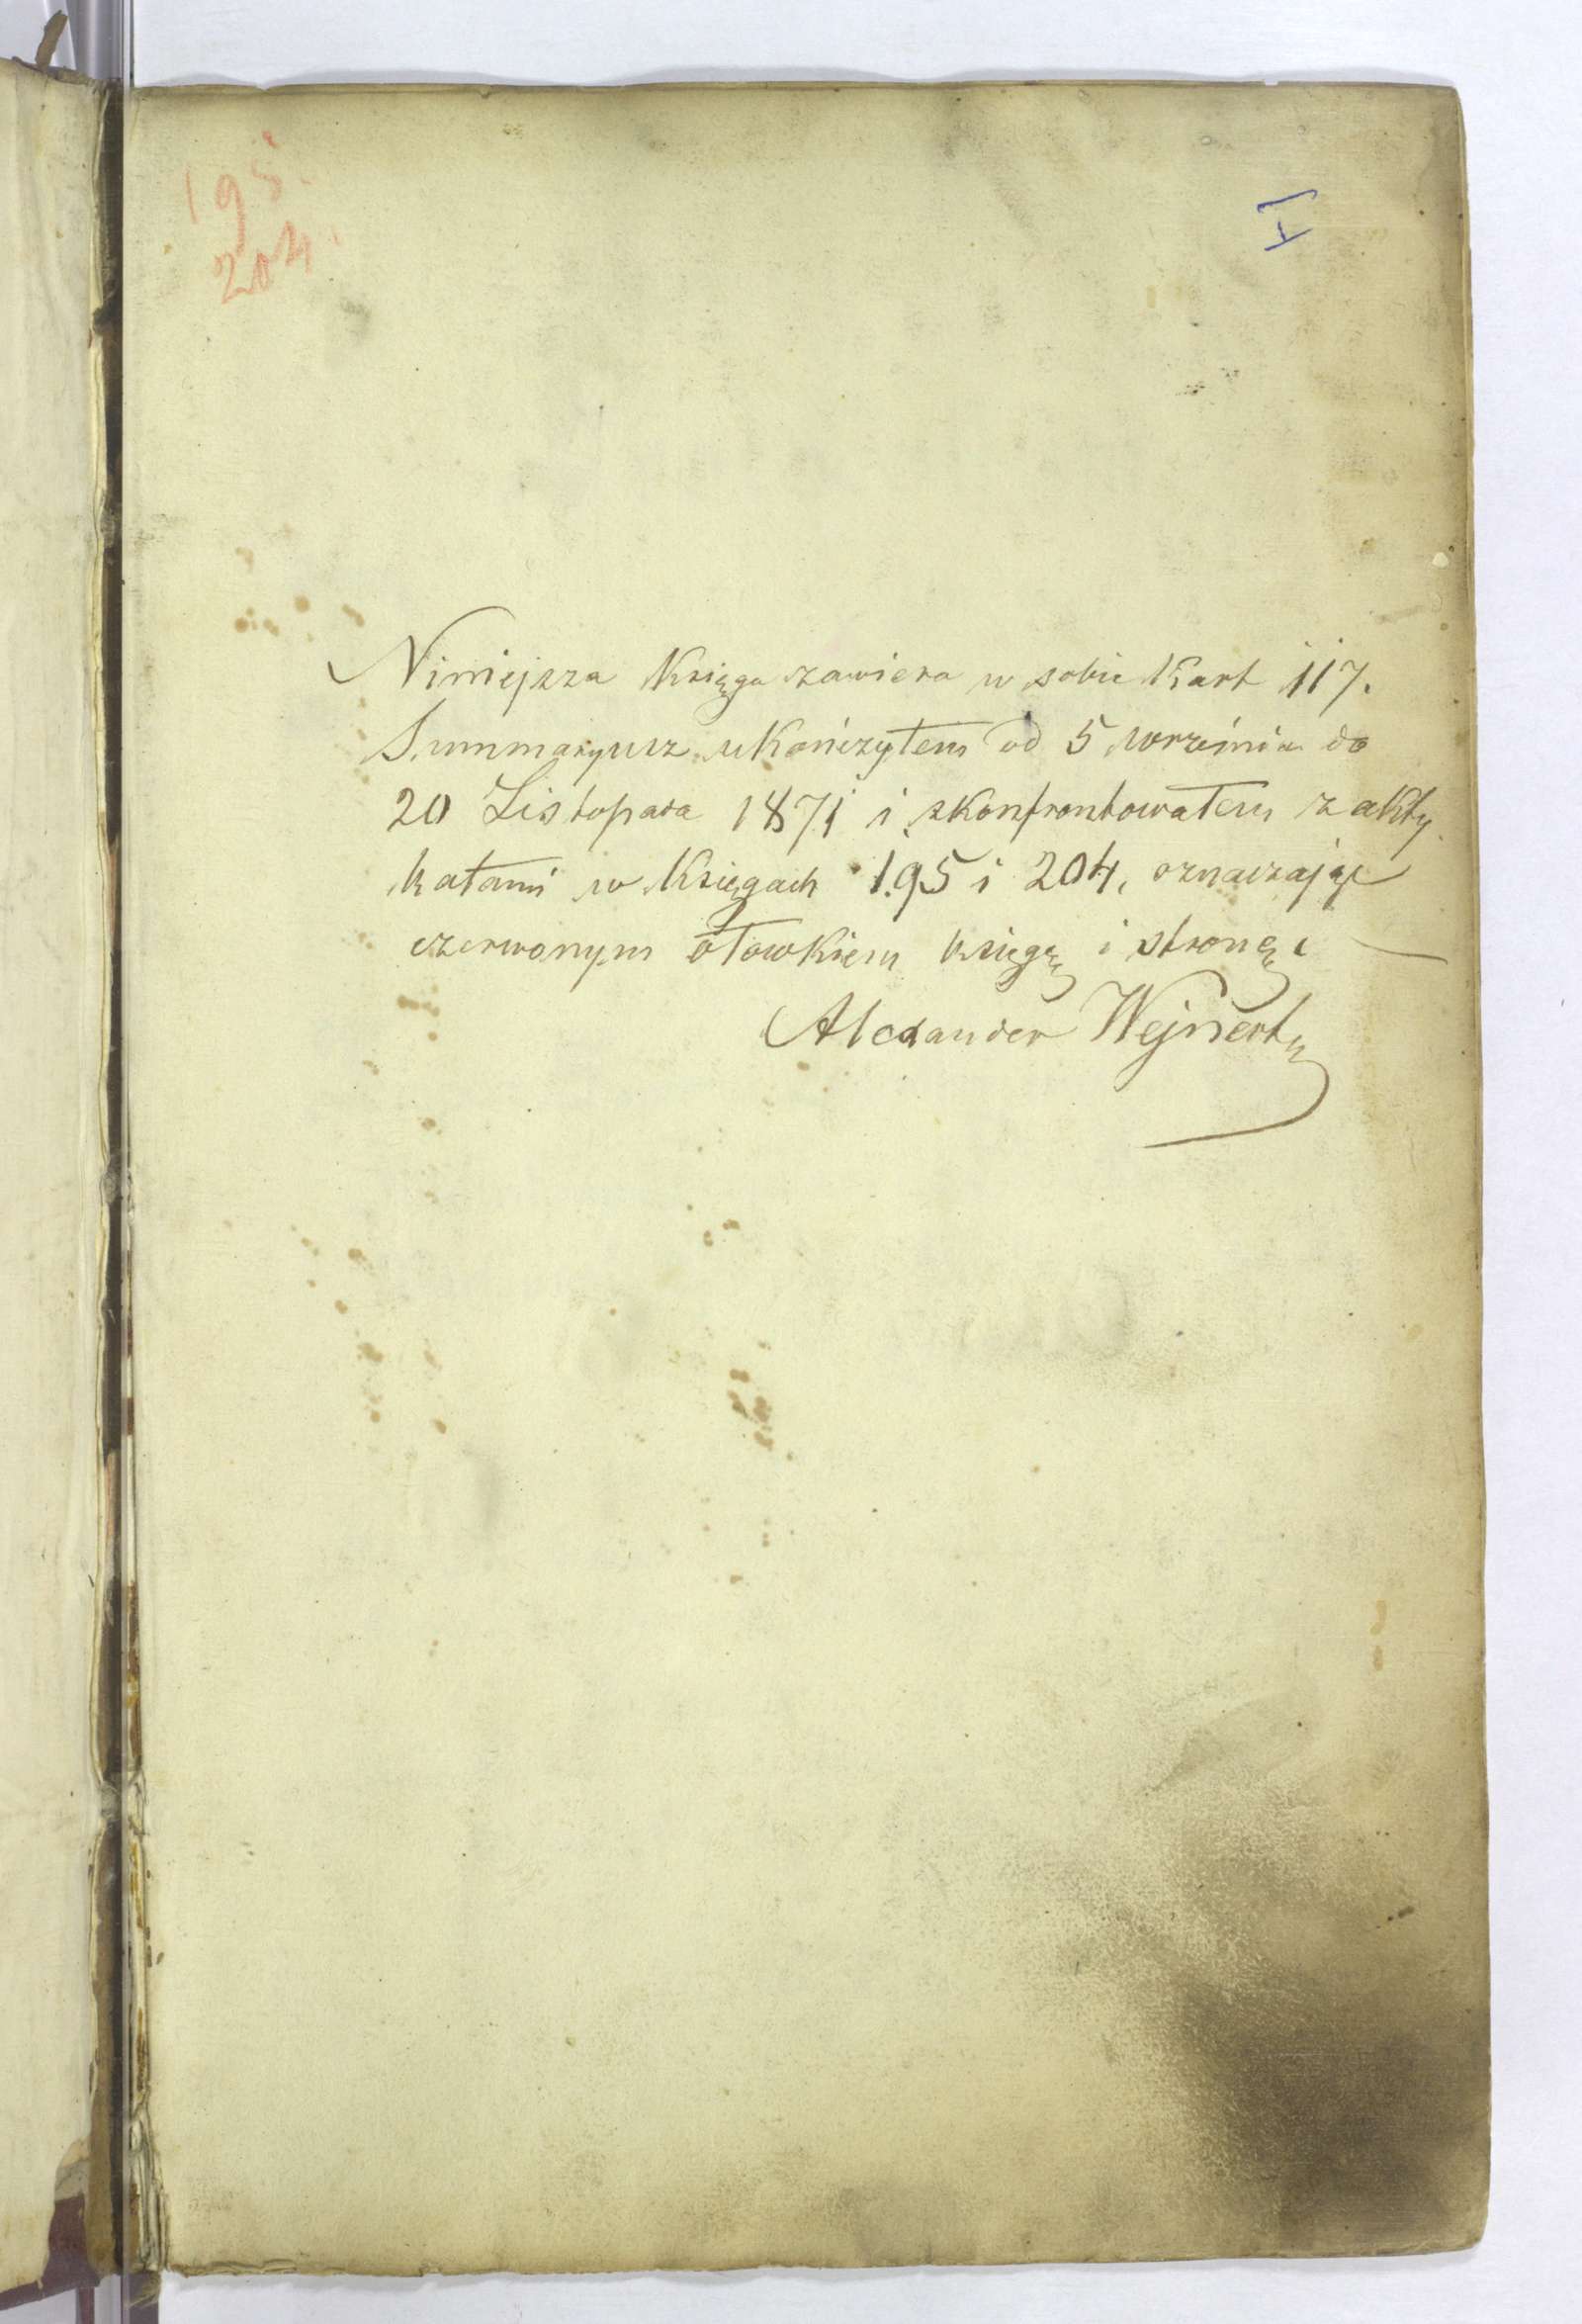 195.
204.
I
Niniejsza Księga zawiera w sobie Kart 117.
Summaryusz ukończyłem od 5 września do
20 Listopada 1871 i skonfrontowałem z akty
katami w Księgach 195 i 204, oznaczając
czerwonym ołowkiem księgę i stronę.
Alexander Wejnert